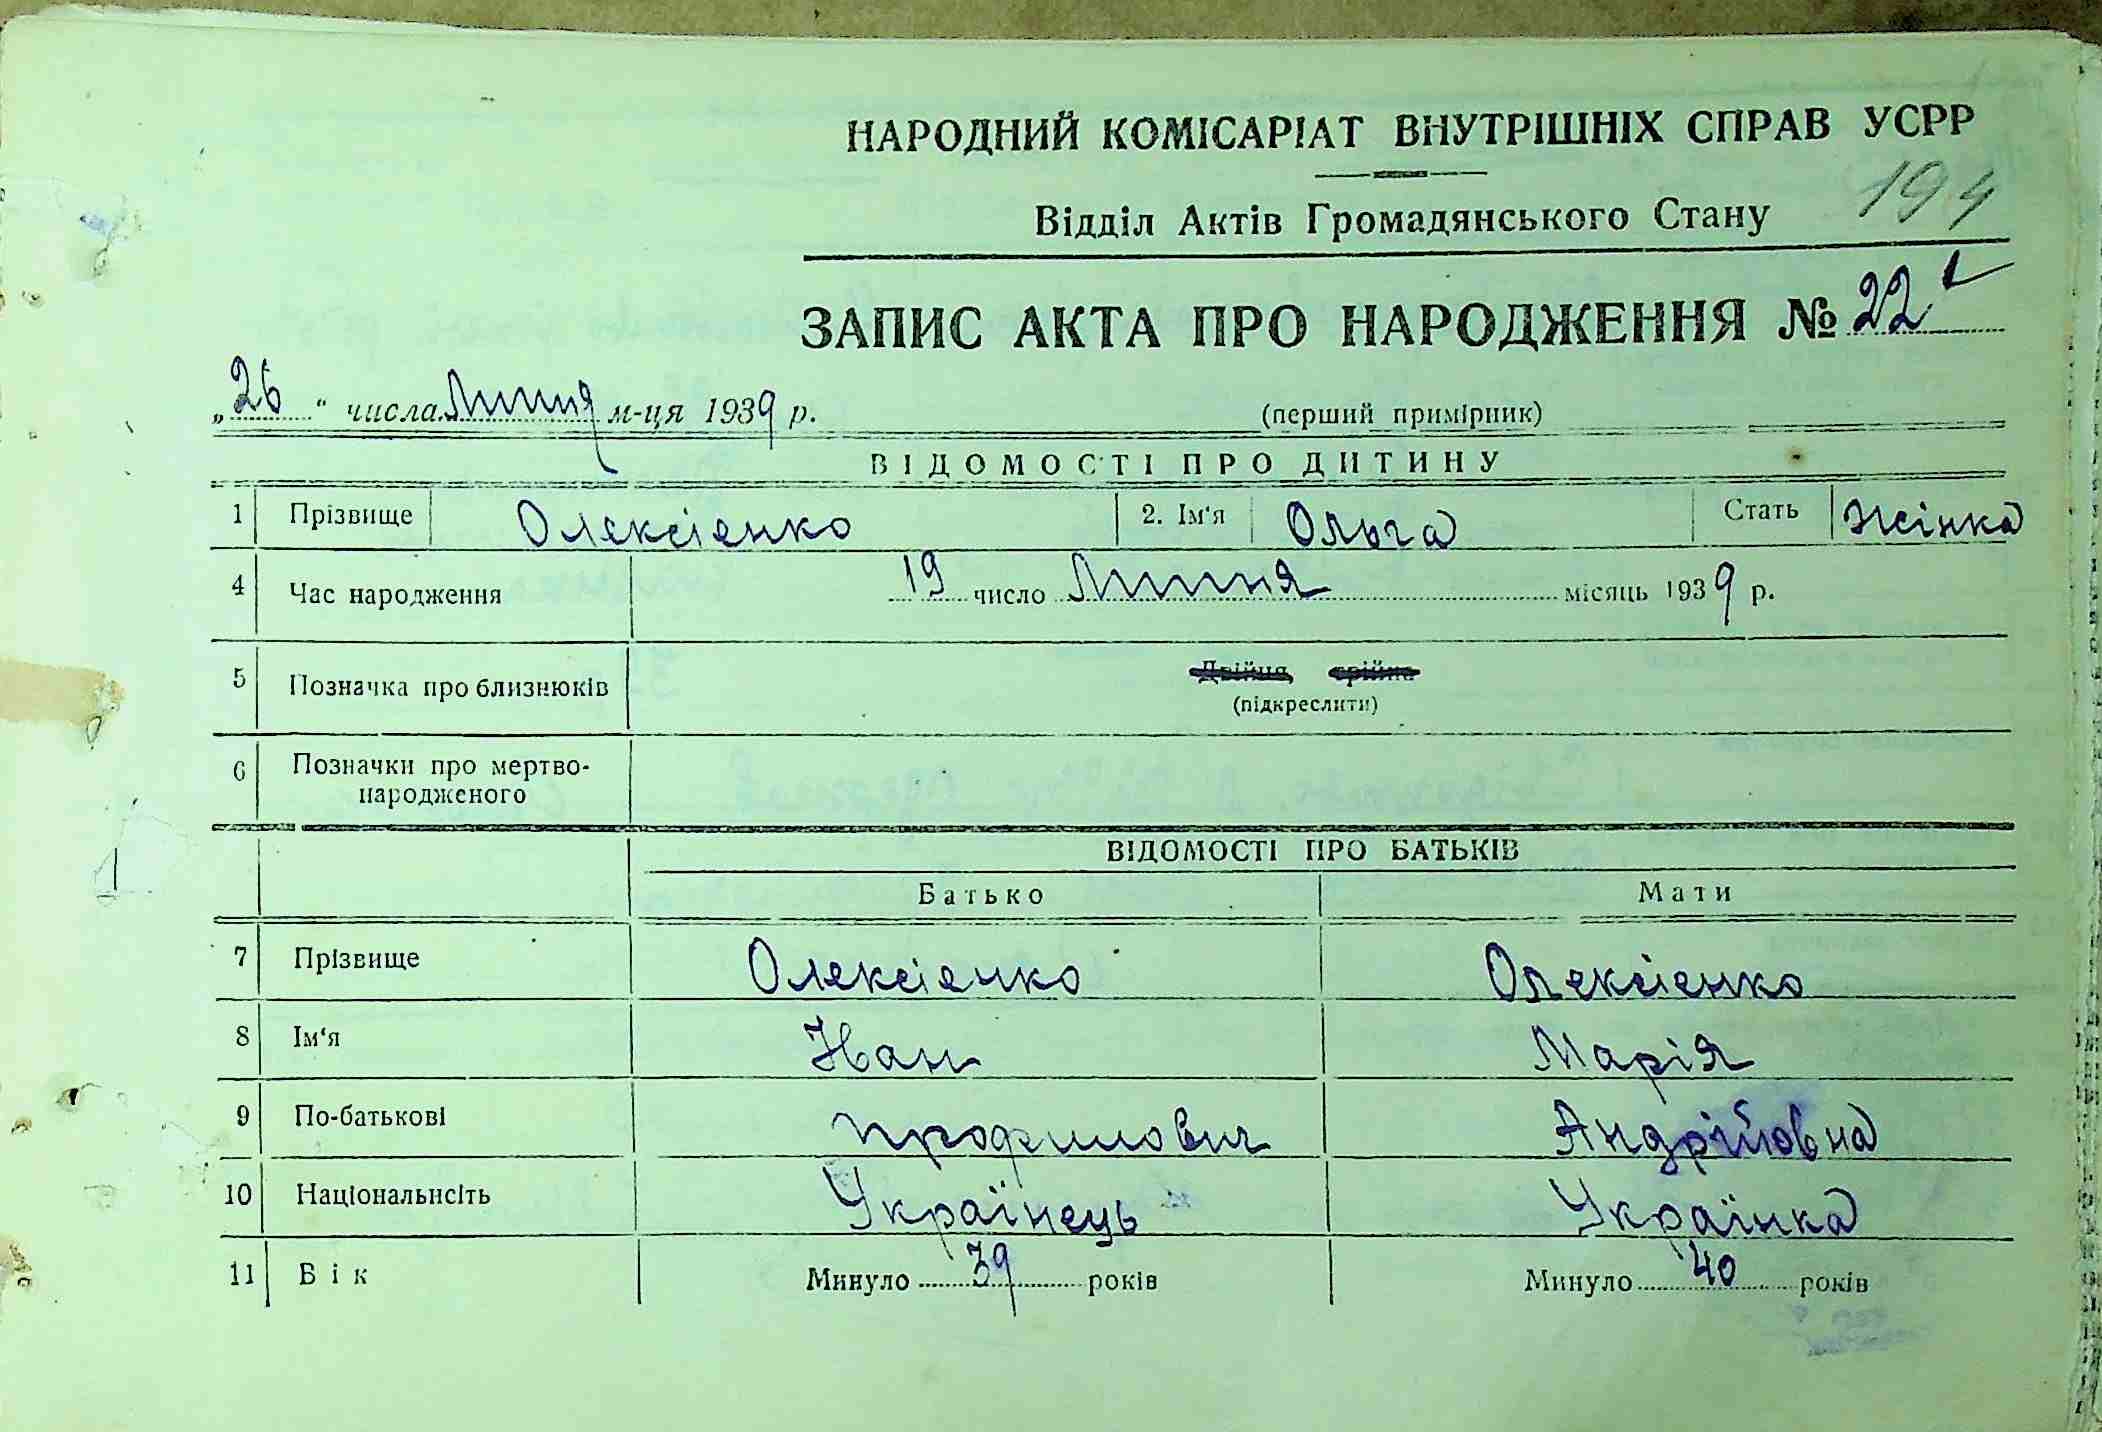 НАРОДНИЙ КОМІСАРІАТ ВНУТРІШНІХ СПРАВ УСРР
194
Відділ Актів Громадянського Стану
ЗАПИС АКТА ПРО НАРОДЖЕННЯ № 22
„26“ числа Липня м-ця 1939 р. (перший примірник)
ВІДОМОСТІ ПРО ДИТИНУ
1 Прізвище Олексієнко 2. Ім'я Ольга Стать жінка
4 Час народження 19 число Липня місяць 1939 р.
5 Позначка про близнюків Двійня, трійня
(підкреслити)
6 Позначки про мертво-
народженого
ВІДОМОСТІ ПРО БАТЬКІВ
Батько Мати
7 Прізвище Олексієнко Олексієнко
8 Ім'я Іван Марія
9 По-батькові Трофимович Андрійовна
10 Національність Українець Українка
11 Вік Минуло 39 років Минуло 40 років